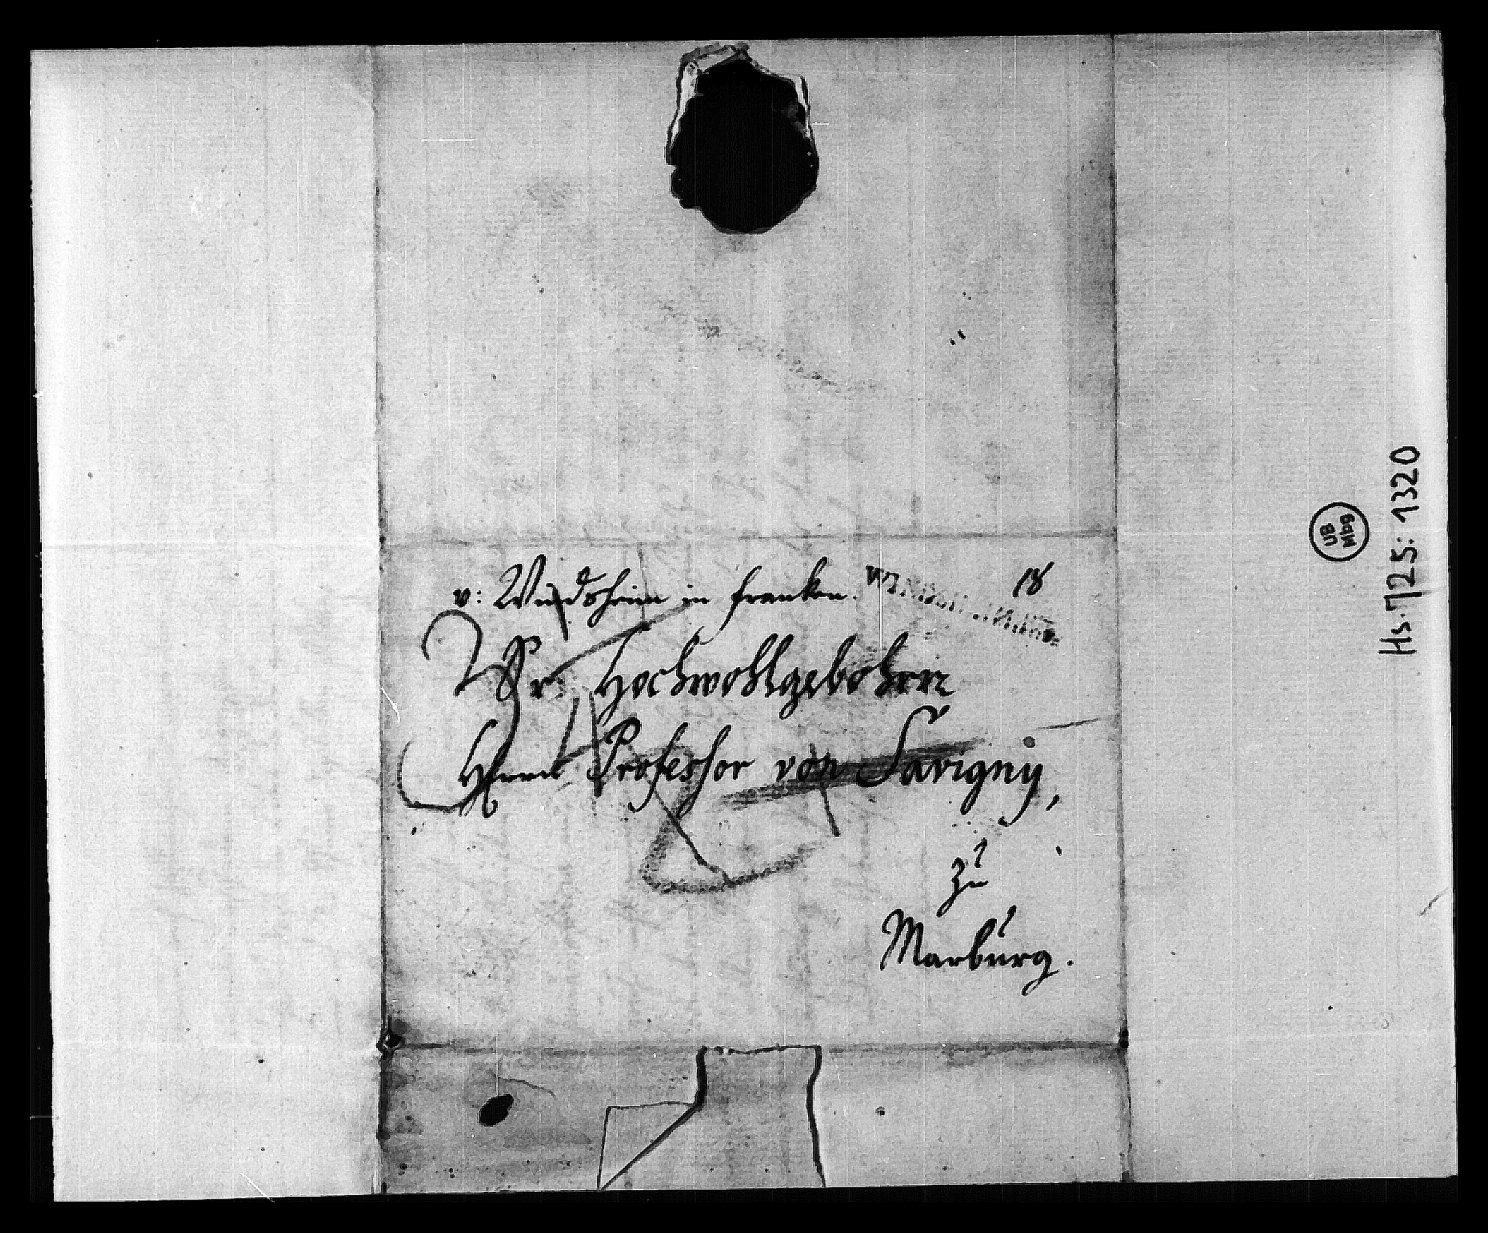 v: Windsheim in Franken. 18
Sr. Hochwohlgebohren
Herrn Professor von Savigny,
zu
Marburg.
UB
Mbg
Hs. 725: 1320